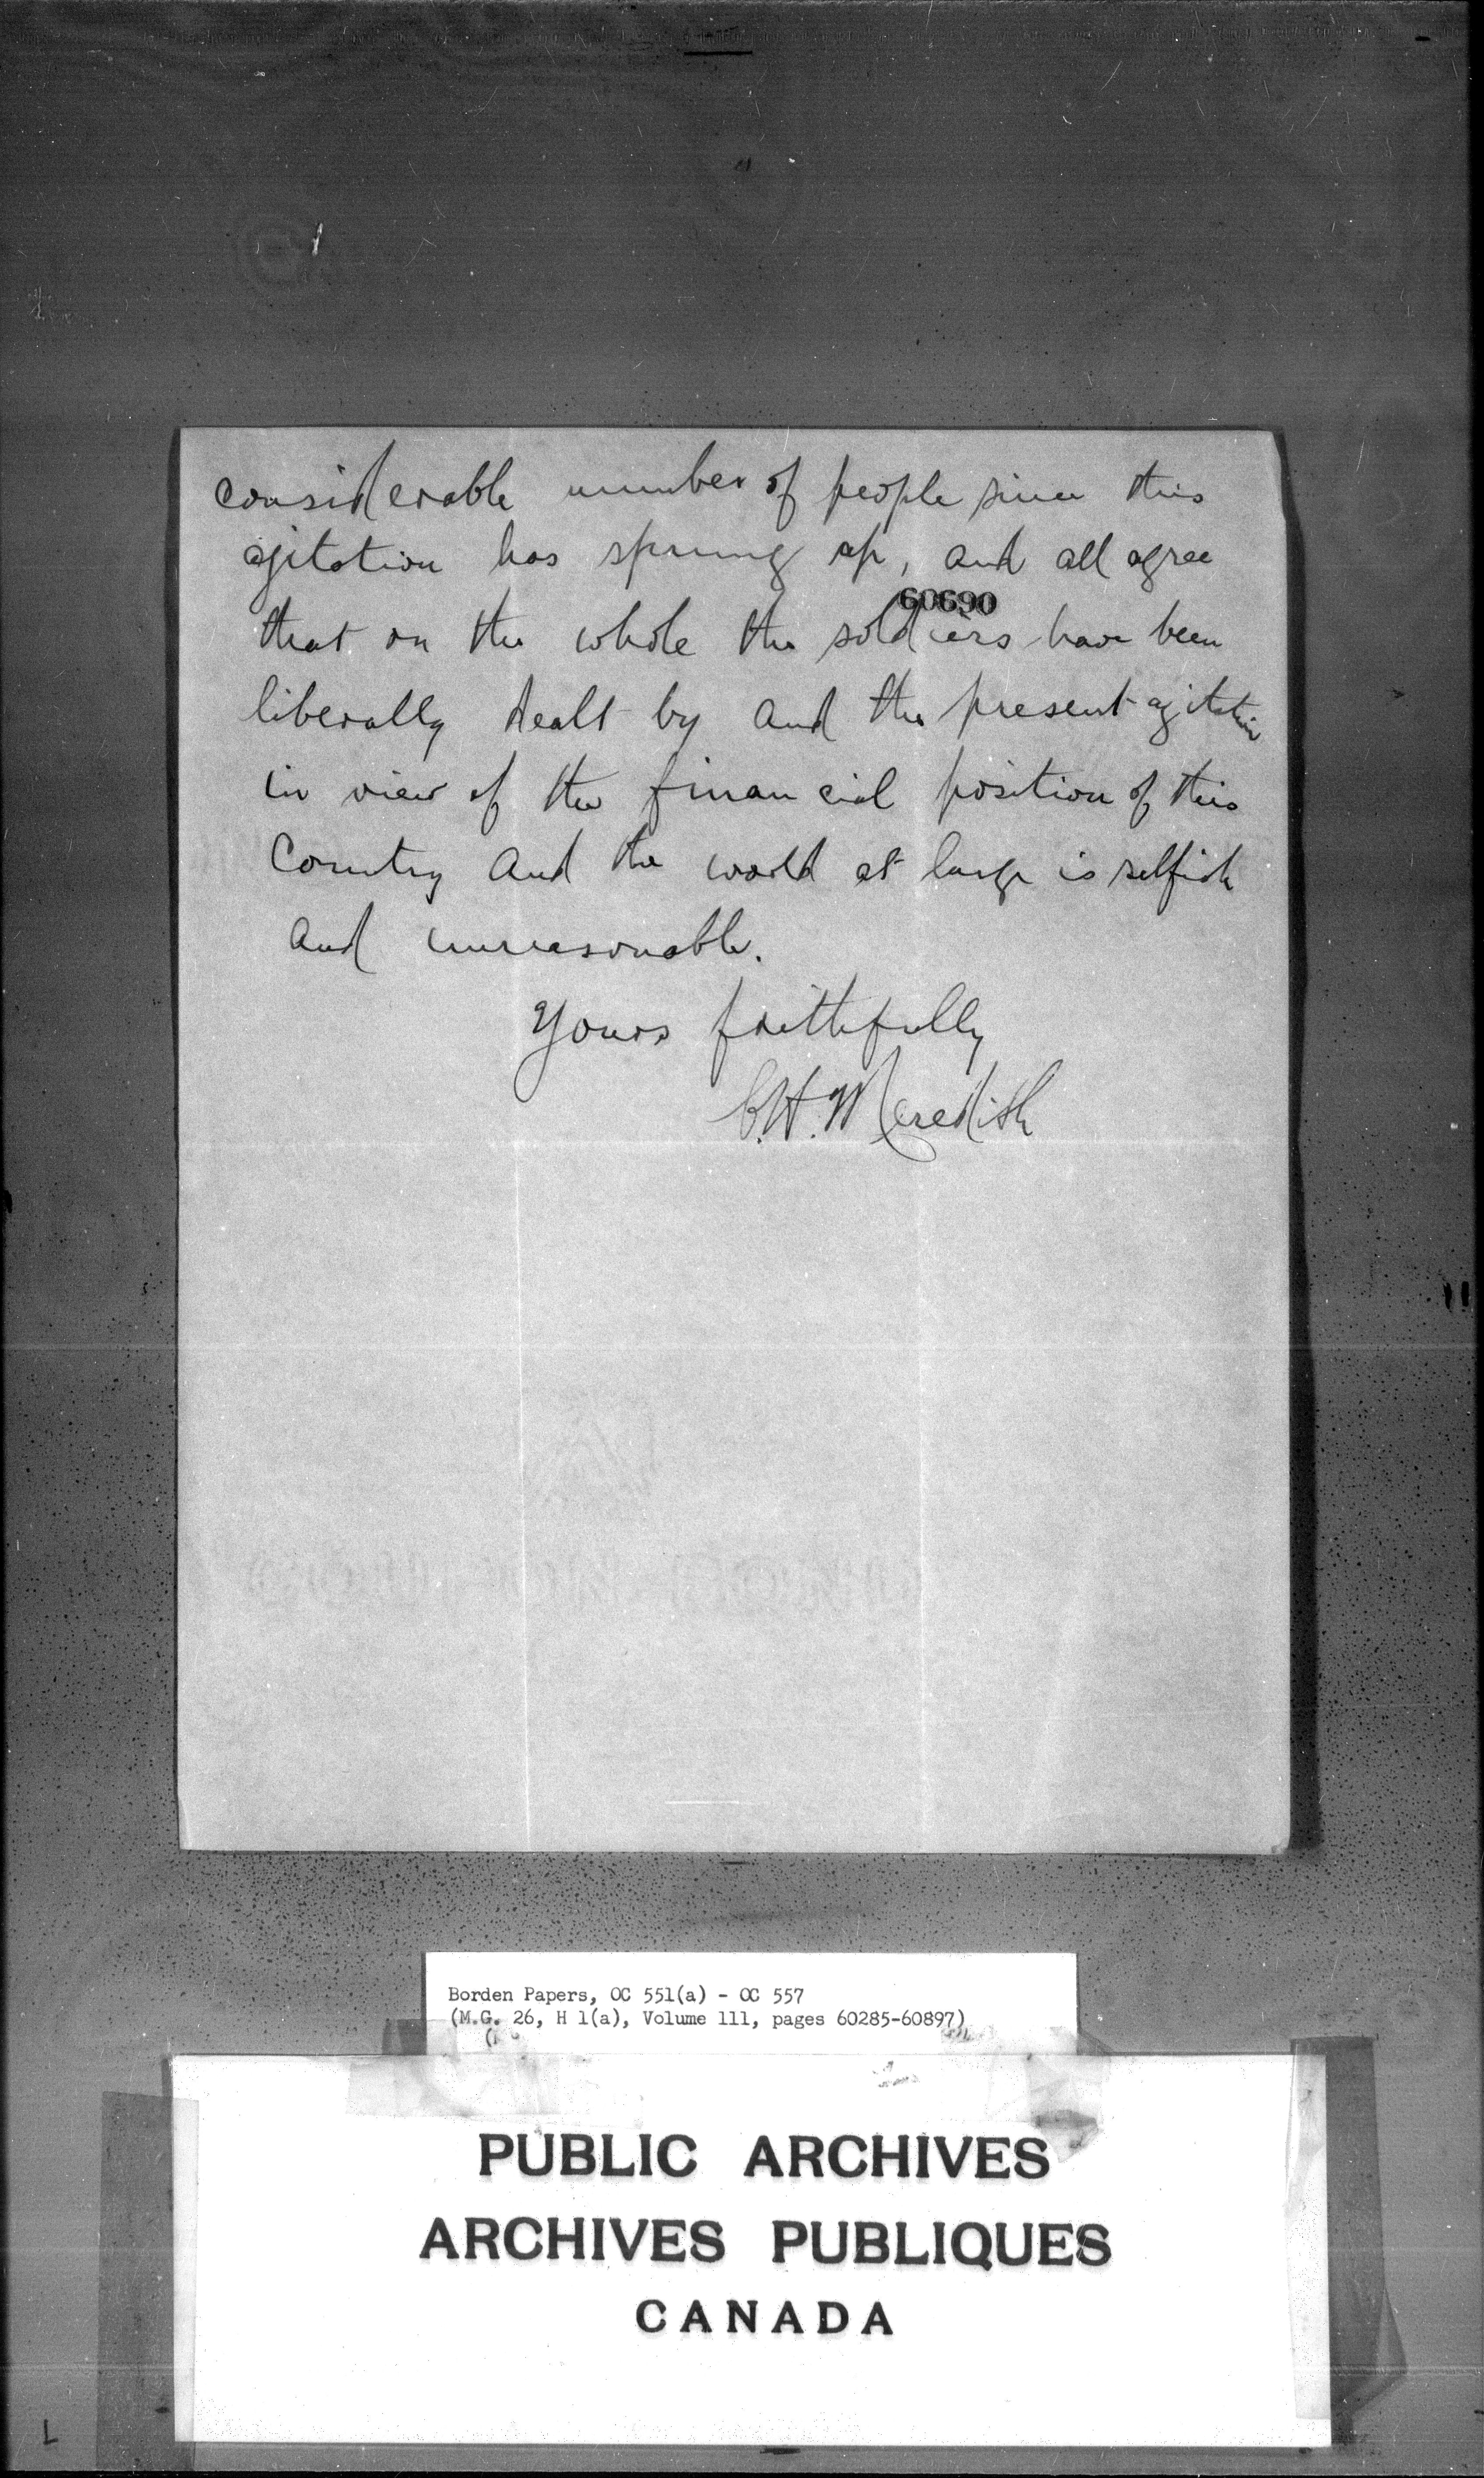 considerable number of people since this
agitation has sprung up, and all agree
60690
that on the whole the soldiers have been
liberally dealt by and the present agitation
in view of the financial position of this
Country and the world at large is selfish
and unreasonable.
Yours faithfully
C.H. Meredith
Borden Papers, OC 551(a) - OC 557
(M.G. 26, H 1(a), Volume 111, pages 60285-60897)
PUBLIC ARCHIVES
ARCHIVES PUBLIQUES
CANADA